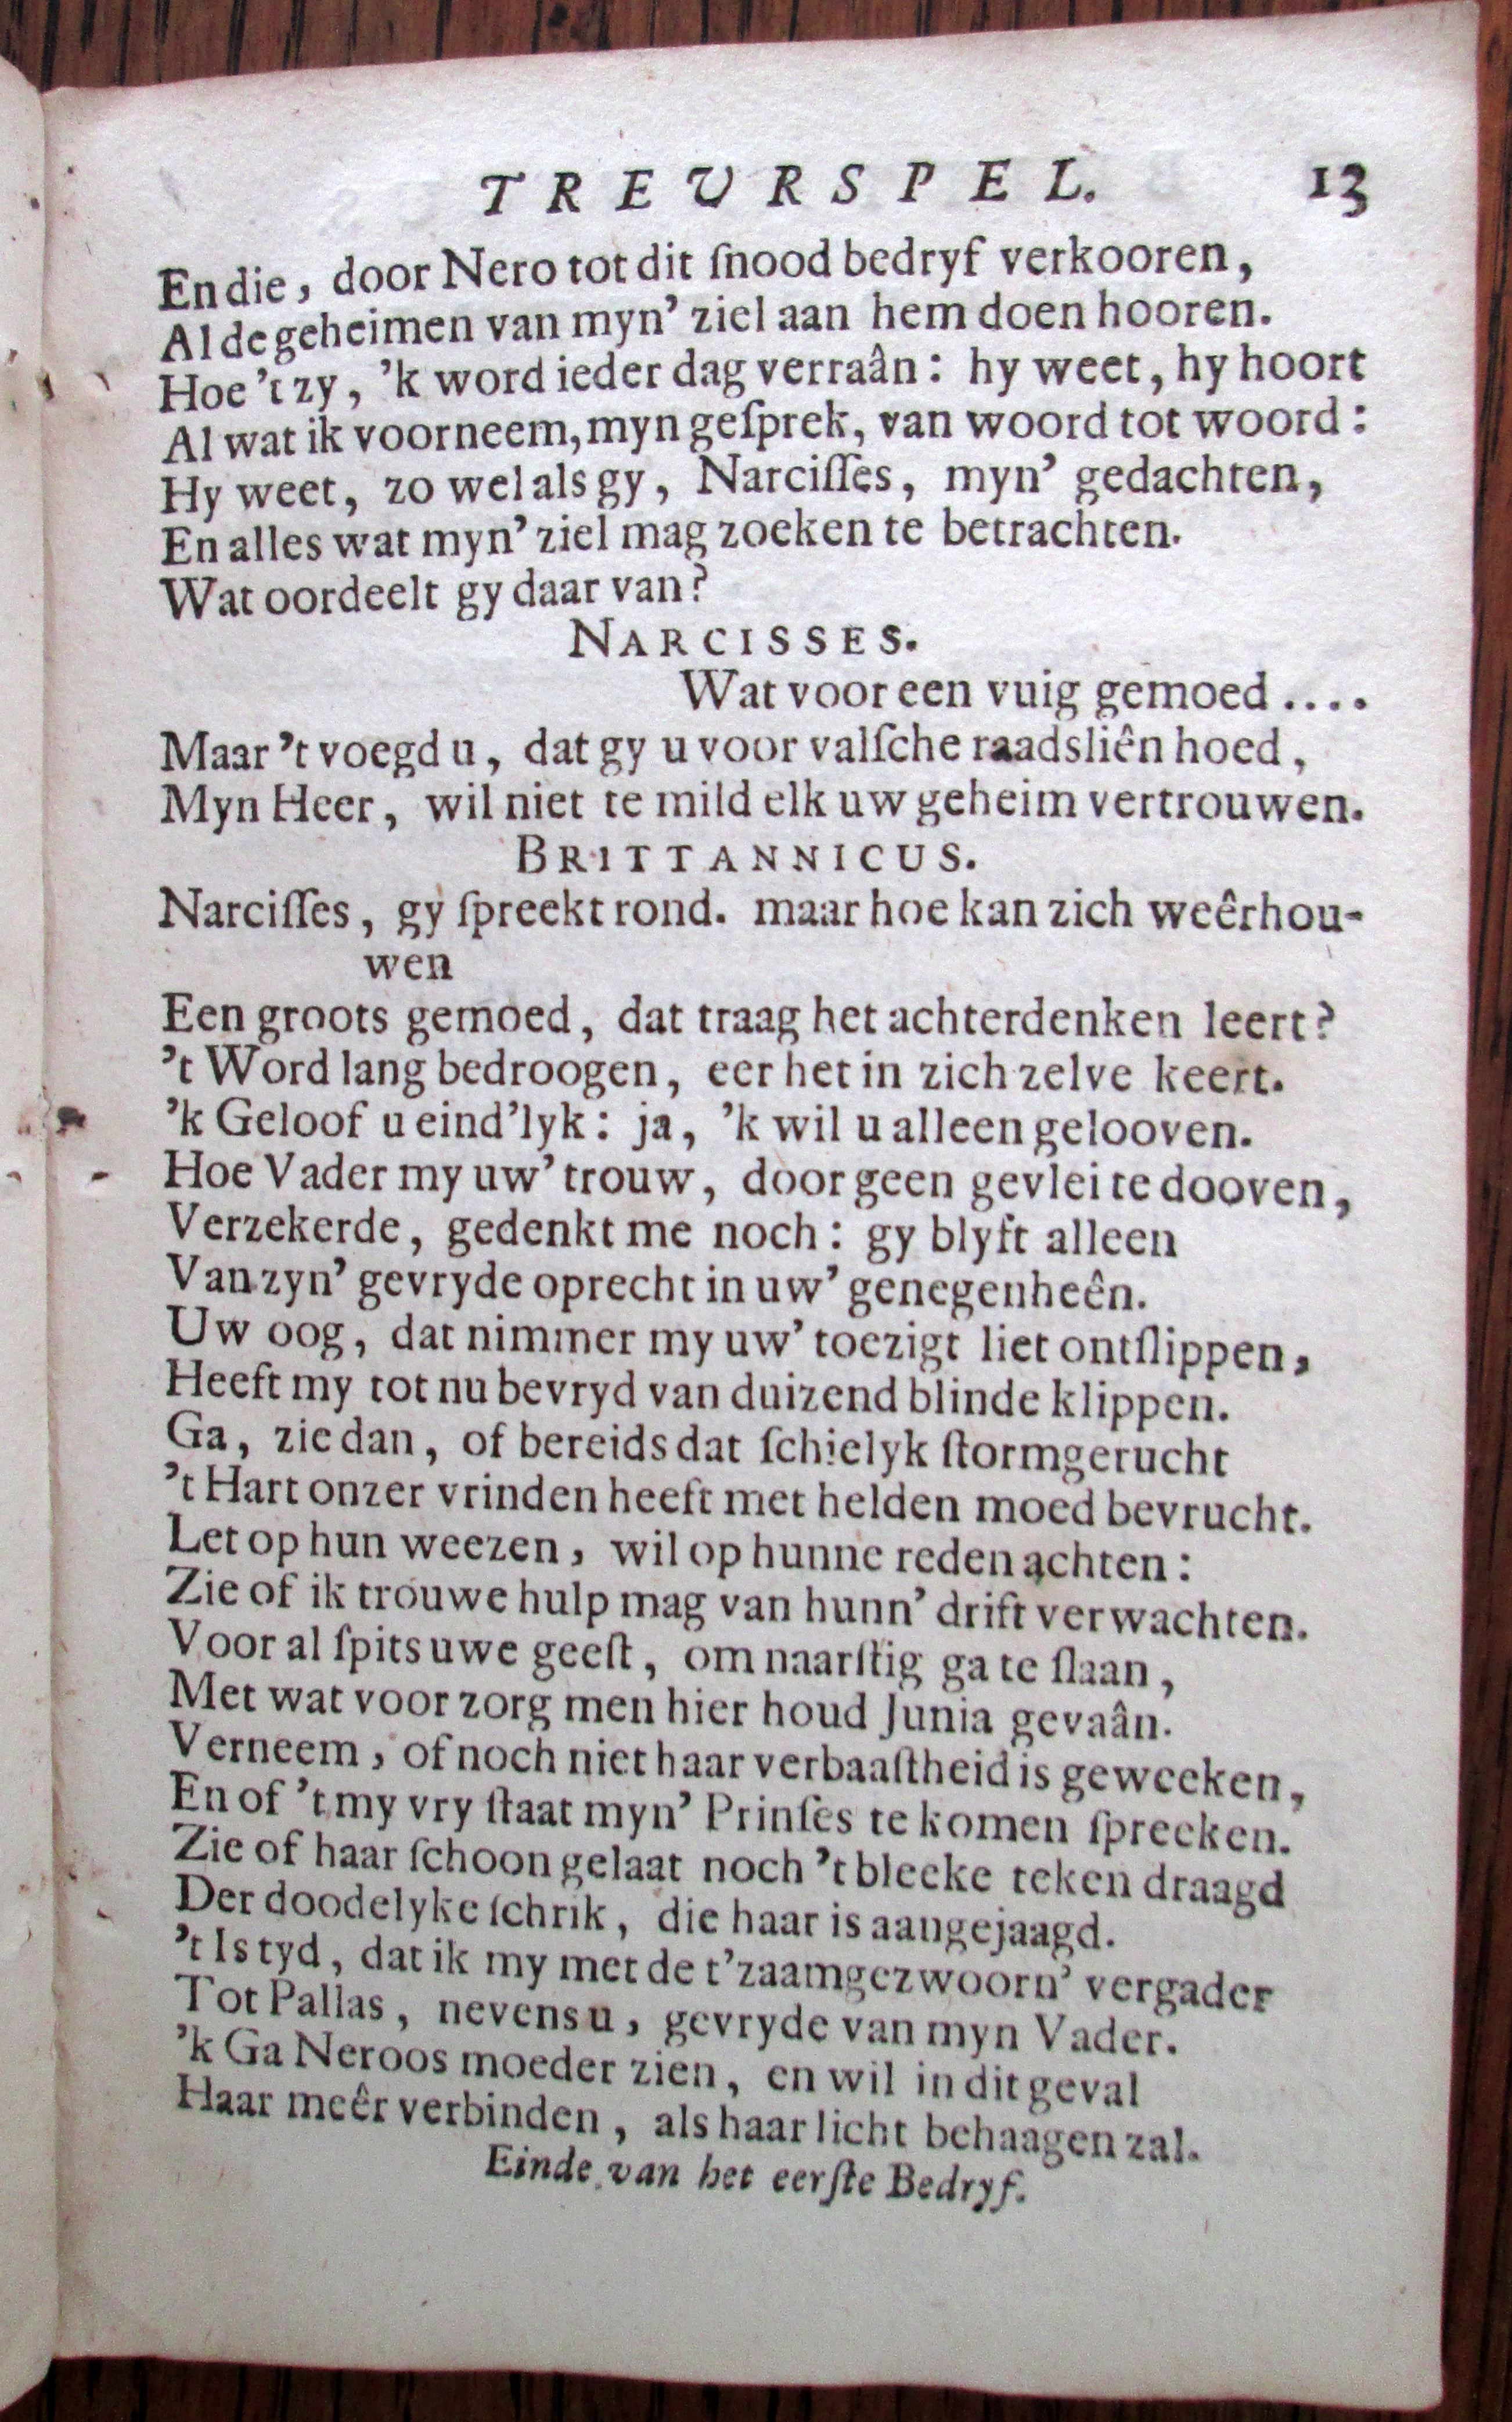 TREURSPEL. 13
En die, door Nero tot dit ſnood bedryf verkooren,
Al de geheimen van myn’ ziel aan hem doen hooren.
Hoe ’t zy, ’k word ieder dag verraân: hy weet, hy hoort
Al wat ik voorneem, myn geſprek, van woord tot woord:
Hy weet, zo wel als gy, Narciſſes, myn’ gedachten,
En alles wat myn’ ziel mag zoeken te betrachten.
Wat oordeelt gy daar van?
NARCISSES.
Wat voor een vuig gemoed ....
Maar ’t voegd u, dat gy u voor valſche raadsliên hoed,
Myn Heer, wil niet te mild elk uw geheim vertrouwen.
BRITTANNICUS.
Narciſſes, gy ſpreekt rond. maar hoe kan zich weêrhou-
wen
Een groots gemoed, dat traag het achterdenken leert?
’t Word lang bedroogen, eer het in zich zelve keert.
’k Geloof u eind’lyk: ja, ’k wil u alleen gelooven.
Hoe Vader my uw’ trouw, door geen gevlei te dooven,
Verzekerde, gedenkt me noch: gy blyft alleen
Van zyn’ gevryde oprecht in uw’ genegenheên.
Uw oog, dat nimmer my uw’ toezigt liet ontſlippen,
Heeft my tot nu bevryd van duizend blinde klippen.
Ga, zie dan, of bereids dat ſchielyk ſtormgerucht
’t Hart onzer vrinden heeft met helden moed bevrucht.
Let op hun weezen, wil op hunne reden achten:
Zie of ik trouwe hulp mag van hunn’ drift verwachten.
Voor al ſpits uwe geeſt, om naarſtig ga te ſlaan,
Met wat voor zorg men hier houd Junia gevaân.
Verneem, of noch niet haar verbaaſtheid is geweeken,
En of ’t my vry ſtaat myn’ Prinſes te komen ſpreeken.
Zie of haar ſchoon gelaat noch ’t bleeke teken draagd
Der doodelyke ſchrik, die haar is aangejaagd.
’t Is tyd, dat ik my met de t’zaamgezwoorn’ vergader
Tot Pallas, nevens u, gevryde van myn Vader.
’k Ga Neroos moeder zien, en wil in dit geval
Haar meêr verbinden, als haar licht behaagen zal.
Einde van het eerſte Bedryf.